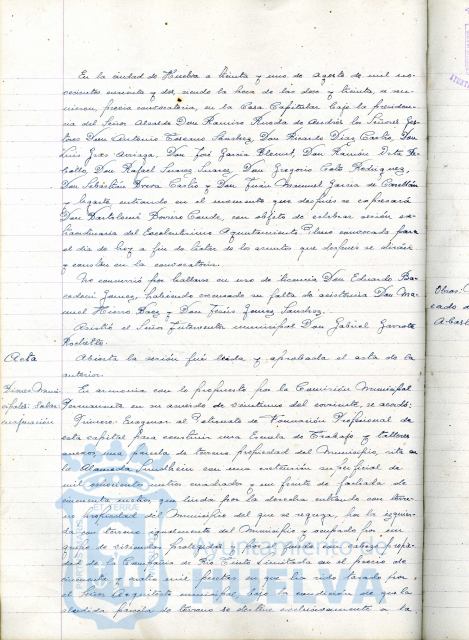 En la ciudad de Huelva a treinta y uno de Agosto de mil no-
vecientos cuarenta y dos, siendo la hora de las doce y treinta, se reu-
nieron, previa convocatoria, en la Casa Capitular bajo la presiden-
cia del Señor Alcalde Don Ramiro Rueda de Andrés los Señores Ges-
tores Don Antonio Toscano Sánchez, Don Ricardo Díaz Carlés, Don
Luis Gras Arriaga, Don José García Don Ramón
Don Rafael Suarez Suarez, Don Gregorio Rodriguez,
Don Sebastián Don Juan Manuel García de
y Lagarta, entrando en el momento que después se expresará
Don Bartolomé Conde, con objeto de celebrar sesión ex-
traordinaria del Excelentísimo Ayuntamiento Pleno convocada para
el día de hoy a fin de tratar de los asuntos que después se dirán
y constan en la convocatoria.
No concurrió por hallarse en uso de licencia Don Eduardo
Gómez, habiendo excusado su falta de asistencia Don Ma-
nuel Hierro Baez y Don Jesús Gómez Sanchez.
Asistió el Señor Interventor municipal Don Gabriel Garrote
Acta
Abierta la sesión fué leída y aprobada el acta de la
anterior.
En armonía con lo propuesto por la Comisión Municipal
Permanente en su acuerdo de veintiuno del corriente, se acordó:
Primero: Enagenar al Patronato de Formación Profesional de
esta capital para construir una Escuela de Trabajo y talleres
anexos, una parcela de terreno propiedad del Municipio, sita en
la Alameda Sundheim con una extensión superficial de
mil metros cuadrados y un frente de fachada de
cincuenta metros, que linda por la derecha entrando con terre-
no propiedad del Municipio del que se segrega, por la izquier-
da con terreno igualmente del Municipio y ocupado por un
grupo de viviendas protegidas y por el fondo con
de la Compañía de Río Tinto Limitada en el precio de
mil pesetas en que ha sido tasado por
el Señor Arquitecto municipal, bajo la condición de que la
aludida parcela de terreno se destine exclusivamente a la
Ayuntamiento de
HUELVA